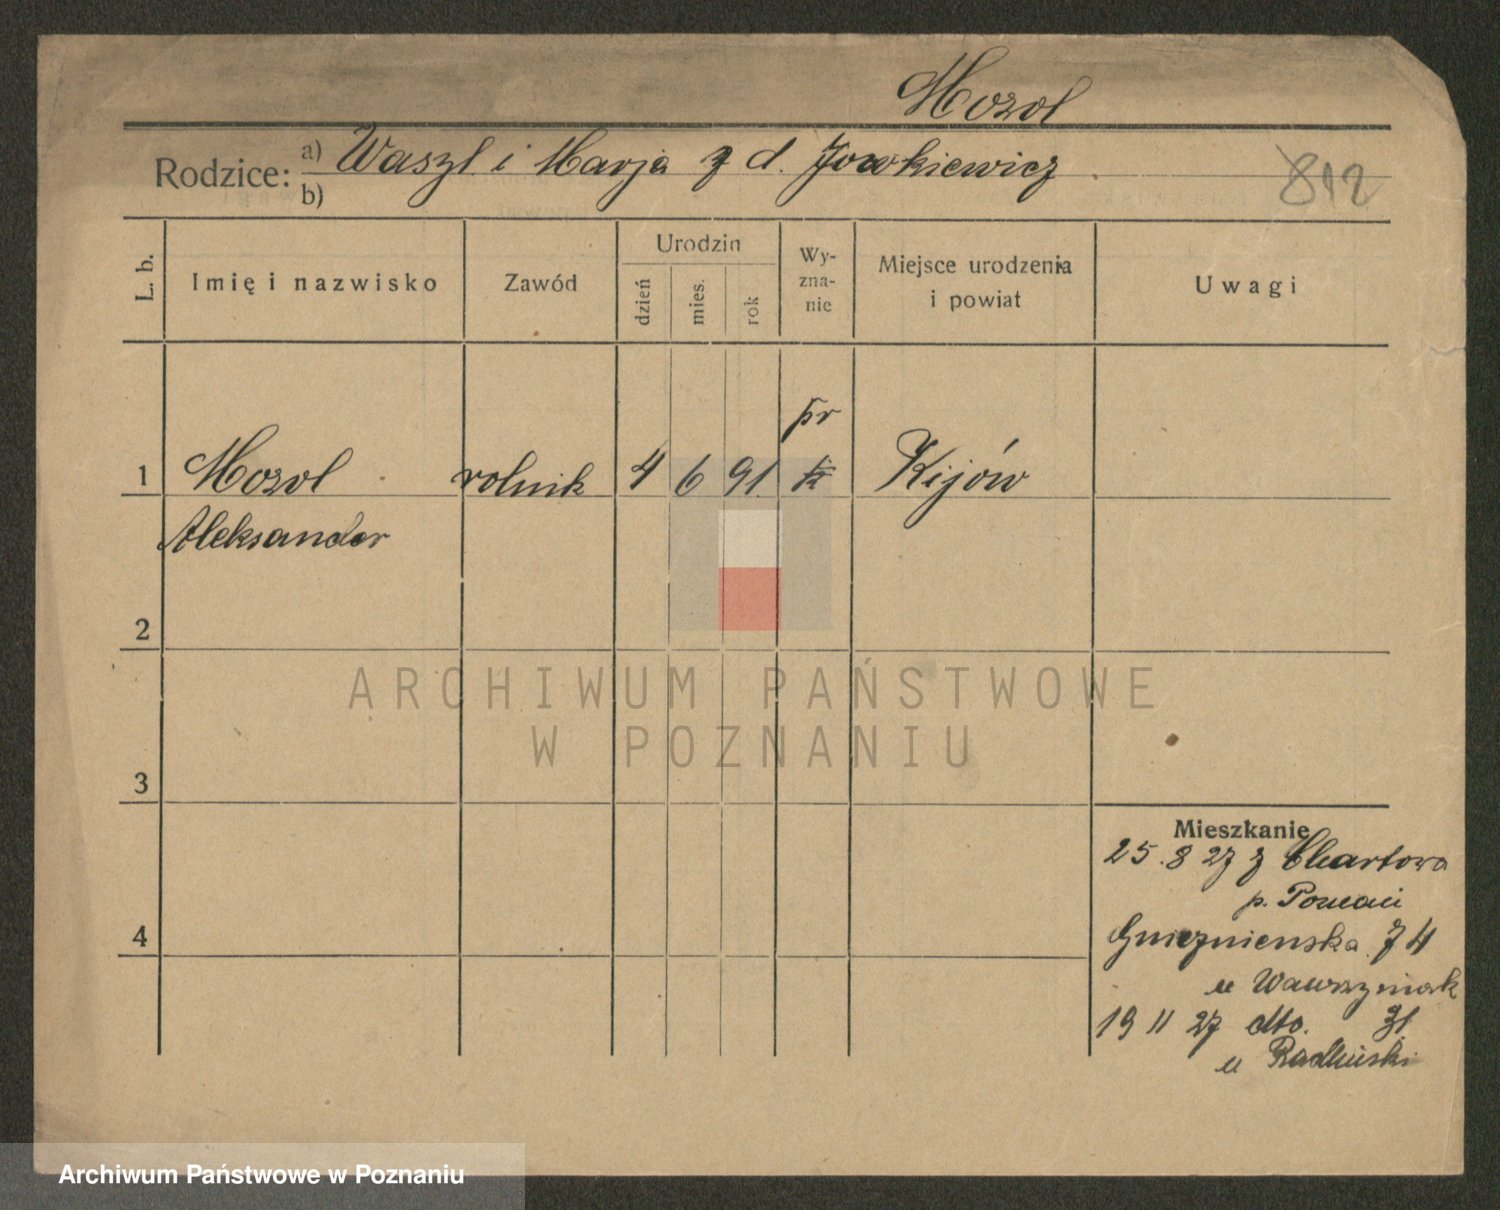 Mozol
Rodzice: a) Waszl i Marja z d. Jowkiewicz
b)
812
L. b.
Imię i nazwisko
Zawód
Urodzin
dzień
mies.
rok
Wy-
zna-
nie
Miejsce urodzenia
i powiat
Uwagi
pr
1 Mozol rolnik 4 6 91. k Kijów
Aleksander
2
ARCHIWUM PAŃSTWOWE
W POZNANIU
3
Mieszkanie
25.8 27 z Chartowa
p. Poznań
4
Gnieznienska 74
u Wawrzyniak
19 11 27 dto. 31
u
Archiwum Państwowe w Poznaniu